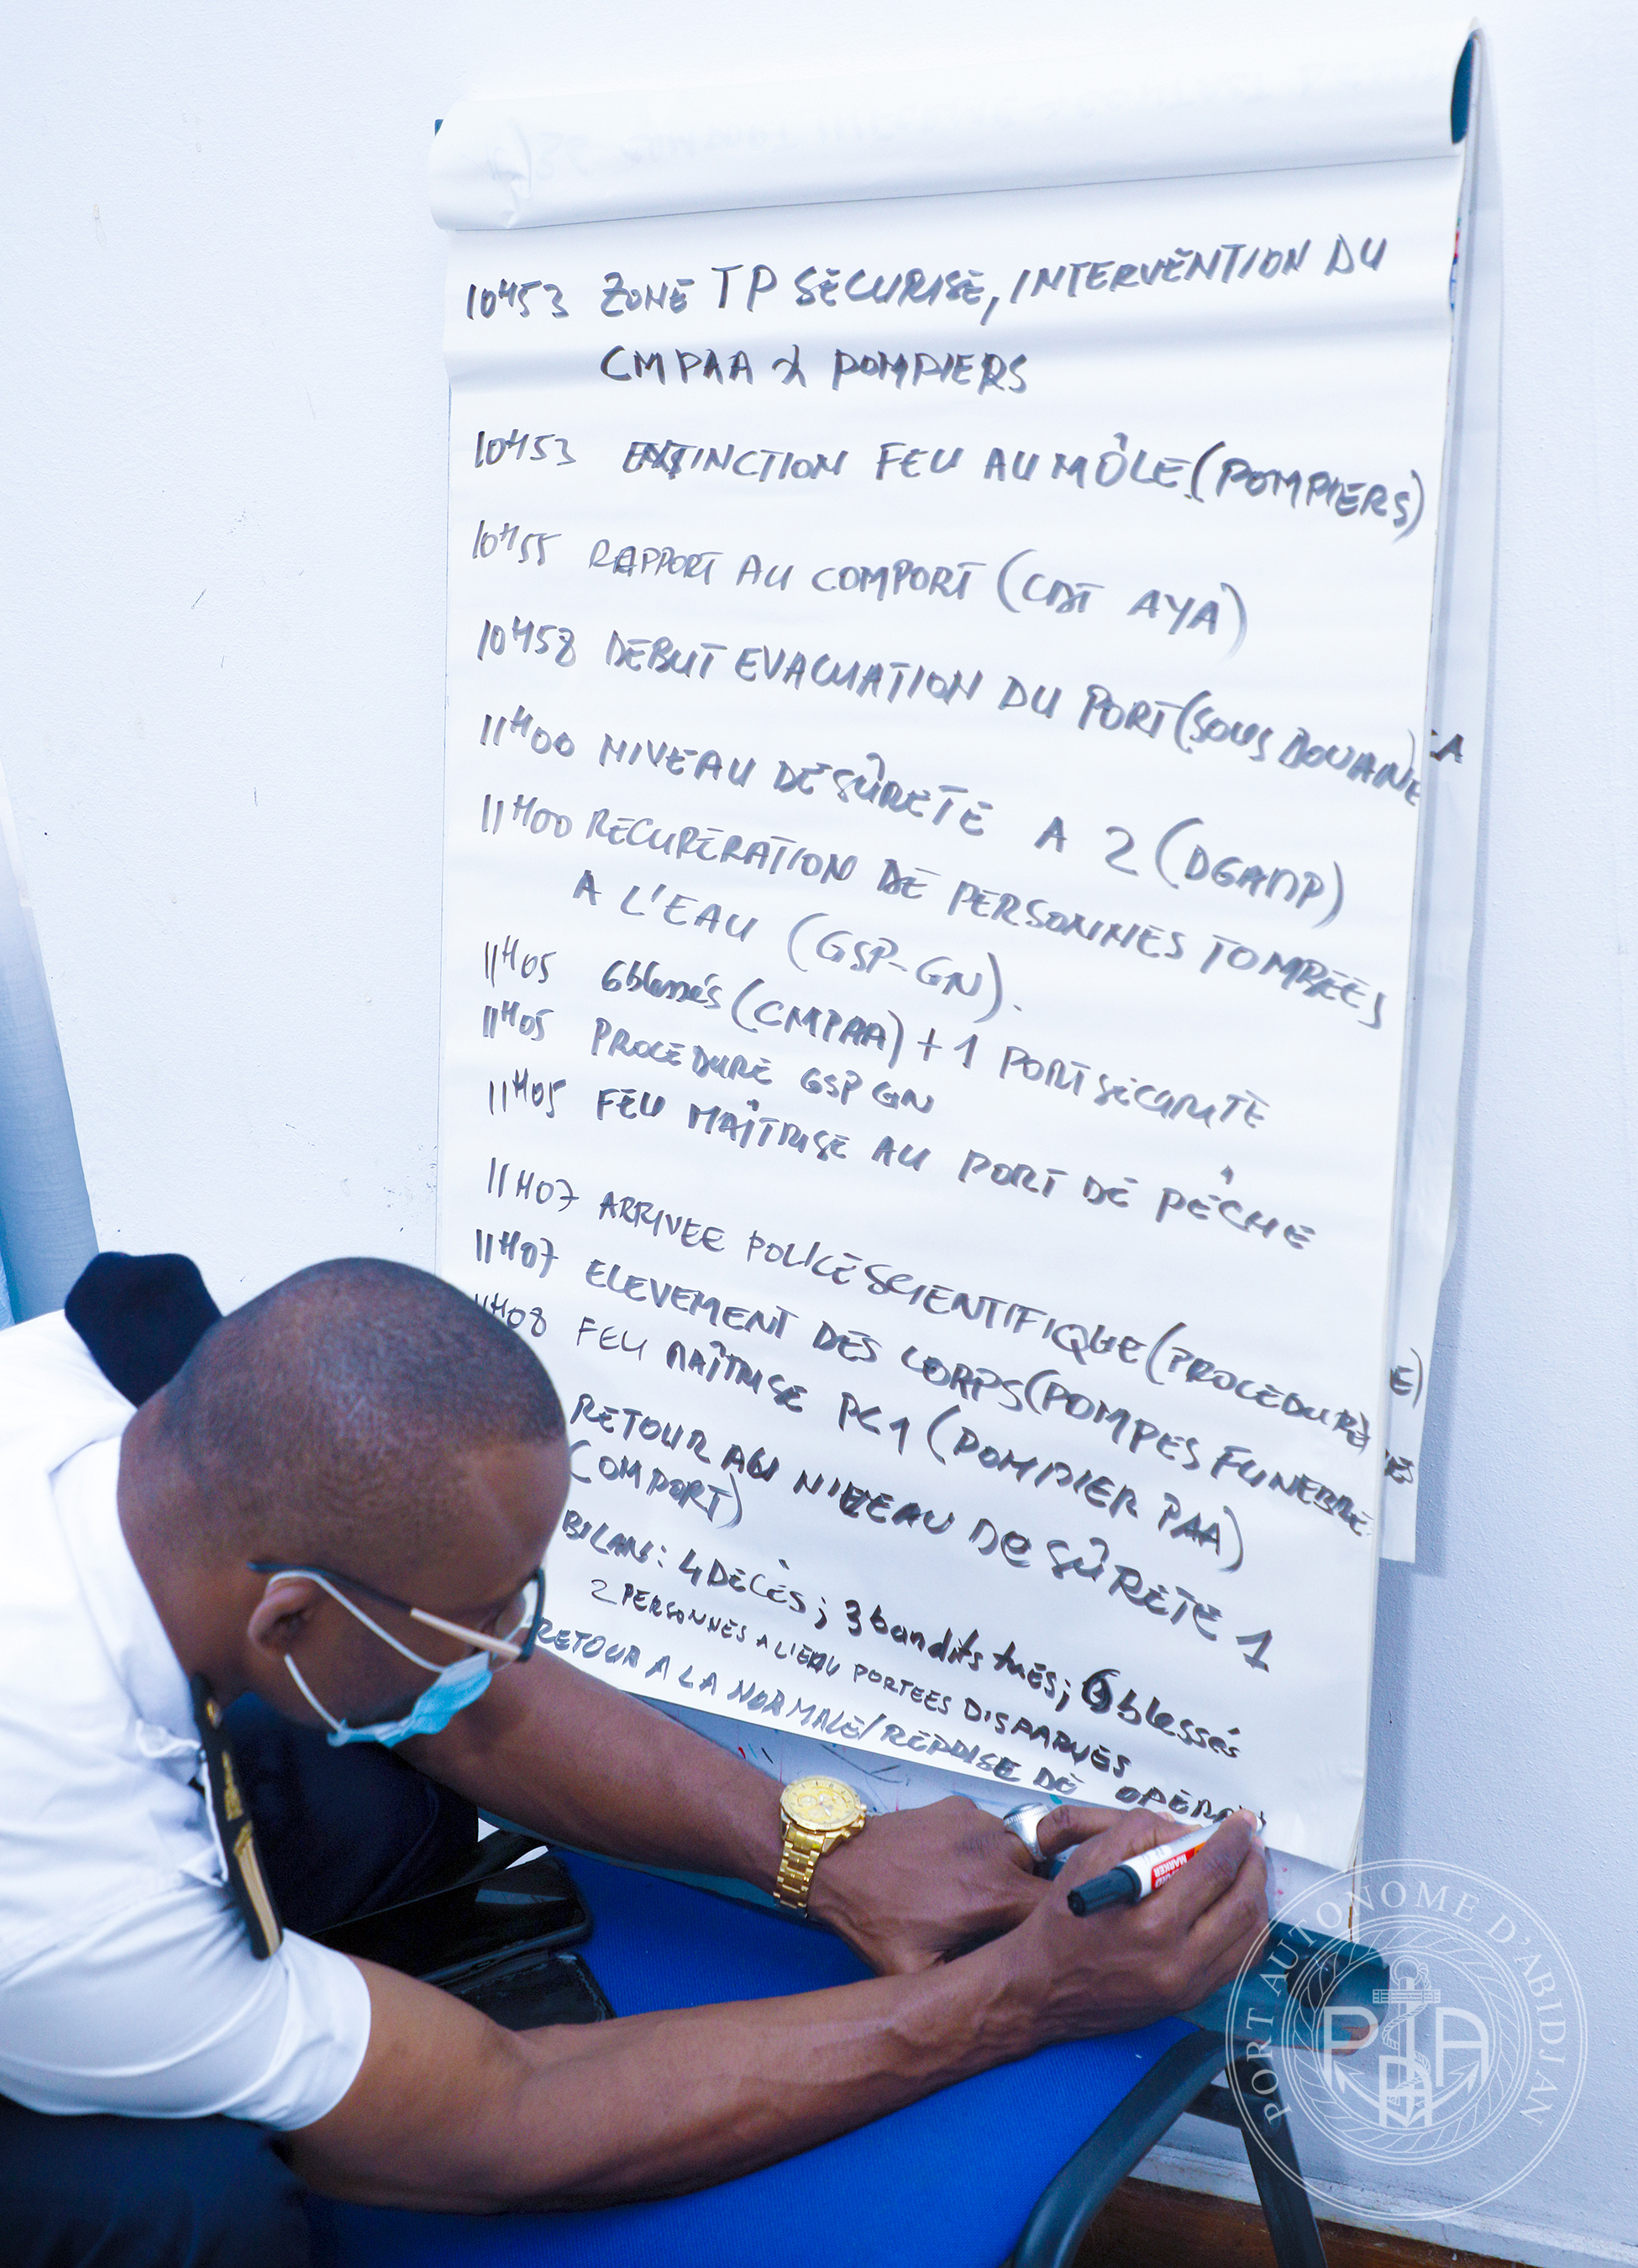 10H53 ZONE TP SECURISE, INTERVENTION DU
CMPAA & POMPIERS
10H53 EXTINCTION FEU AU MÔLE (POMPIERS)
10H55 RAPPORT AU COMPORT (CDT AYA)
10H58 DEBUT EVACUATION DU PORT (SOUS DOUANE
11H00 NIVEAU DE SÛRETE A 2 (DGAMP)
11H00 RECUPERATION DE PERSONNES TOMBEES
A L'EAU (GSP-GN).
11H05 6 blessés (CMPAA) + 1 PORT SECURITE
11H05 PROCEDURE GSP GN
11H05 FEU MAÎTRISE AU PORT DE PÊCHE
11H07 ARRIVEE POLICE SCIENTIFIQUE (PROCEDURE)
11H07 ELEVEMENT DES CORPS (POMPES FUNEBRE
11H08 FEU MAÎTRISE PC1 (POMPIER PAA)
RETOUR AU NIVEAU DE SÛRETE 1
(COMPORT)
BILAN: 4 DECES; 3 bandits tués; 6 blessés
2 PERSONNES A L'EAU PORTEES DISPARUES
RETOUR A LA NORMALE/REPRISE DE
MARKER
PORT AUTONOME D'ABIDJAN
PAA